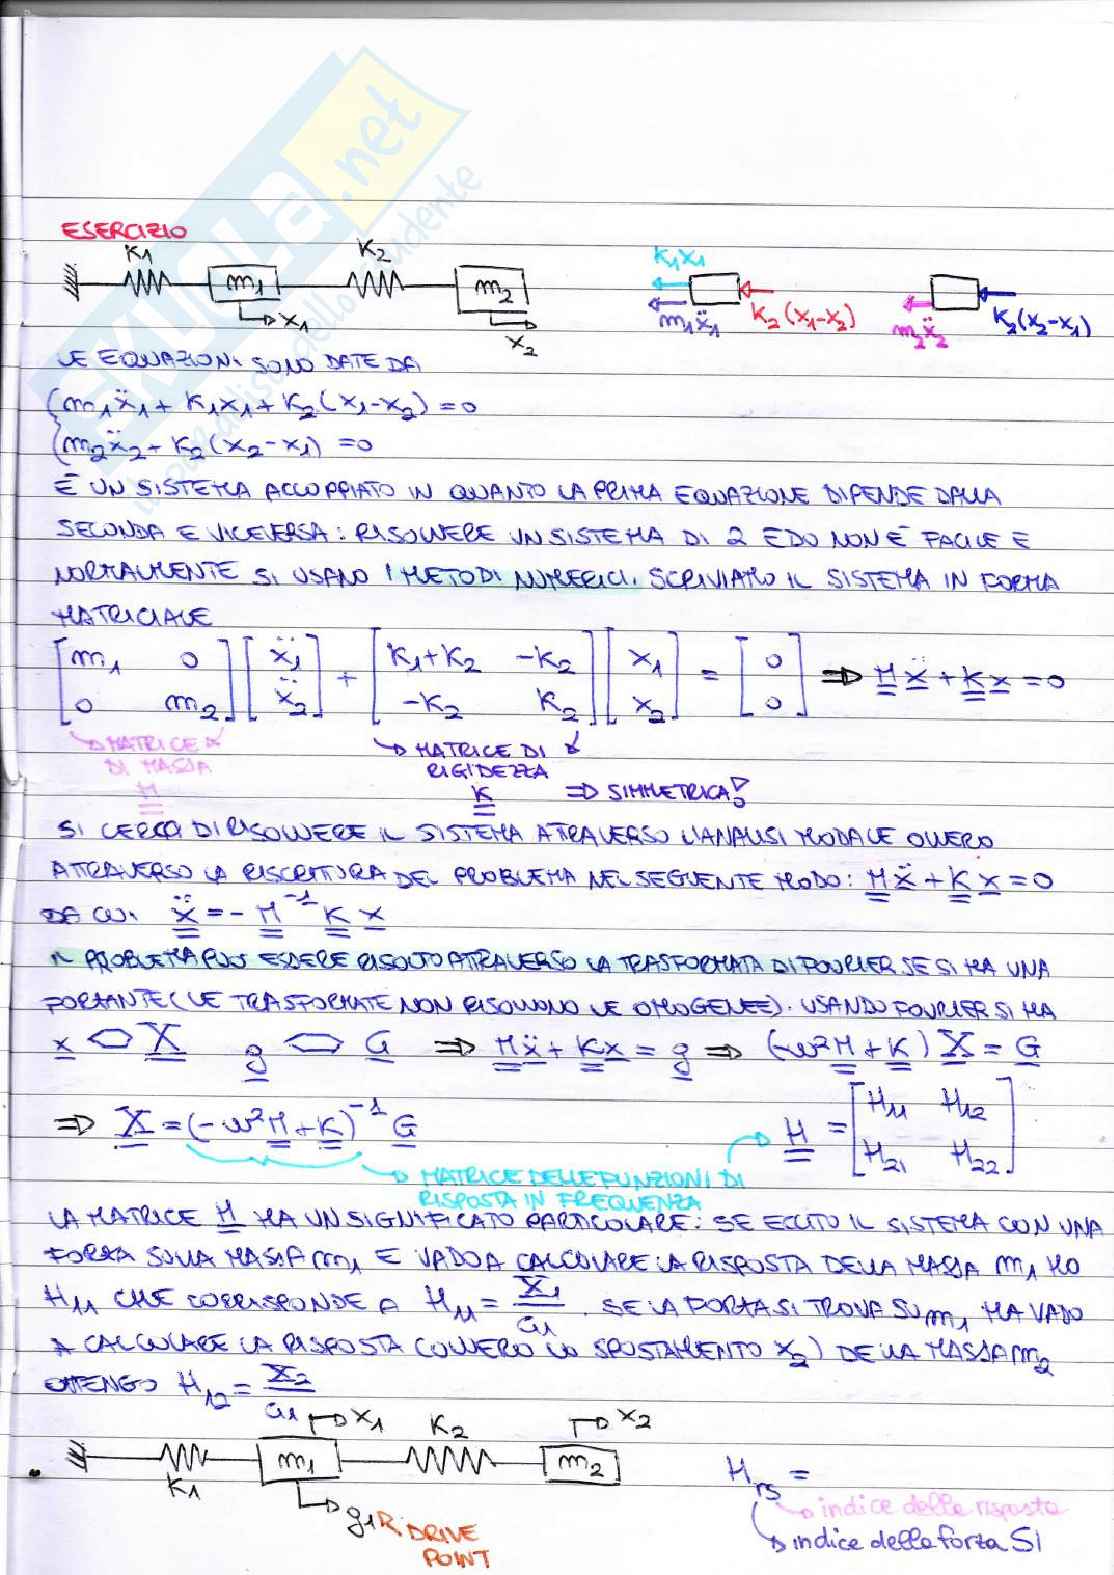 ESERCIZIO
K1 m1 K2 m2
x1 x2
K1x1 m1ẍ1 K2(x1-x2)
m2ẍ2 K2(x2-x1)
LE EQUAZIONI SONO DATE DA
{m1ẍ1 + K1x1 + K2(x1-x2) = 0
{m2ẍ2 + K2(x2-x1) = 0
È UN SISTEMA ACCOPPIATO IN QUANTO LA PRIMA EQUAZIONE DIPENDE DALLA
SECONDA E VICEVERSA: RISOLVERE UN SISTEMA DI 2 EDO NON È FACILE E
NORMALMENTE SI USANO I METODI NUMERICI. SCRIVIAMO IL SISTEMA IN FORMA
MATRICIALE
[m1 0] [ẍ1] + [K1+K2 -K2] [x1] = [0] ⇒ M ẍ + K x = 0
[0 m2] [ẍ2] [-K2 K2] [x2] [0]
MATRICE MATRICE DI
DI MASSA RIGIDEZZA
M K ⇒ SIMMETRICA!
SI CERCA DI RISOLVERE IL SISTEMA ATTRAVERSO L'ANALISI MODALE OVVERO
ATTRAVERSO LA RISCRITTURA DEL PROBLEMA NEL SEGUENTE MODO: M ẍ + K x = 0
DA CUI ẍ = - M⁻¹ K x
IL PROBLEMA PUÒ ESSERE RISOLTO ATTRAVERSO LA TRASFORMATA DI FOURIER SE SI HA UNA
FORZANTE (LE TRASFORMATE NON RISOLVONO LE OMOGENEE). USANDO FOURIER SI HA
x ⇔ X g ⇔ G ⇒ M ẍ + K x = g ⇒ (-ω²M + K) X = G
⇒ X = (-ω²M + K)⁻¹ G H = [H11 H12]
[H21 H22]
MATRICE DELLE FUNZIONI DI
RISPOSTA IN FREQUENZA
LA MATRICE H HA UN SIGNIFICATO PARTICOLARE: SE ECCITO IL SISTEMA CON UNA
FORZA SULLA MASSA m1 E VADO A CALCOLARE LA RISPOSTA DELLA MASSA m1 HO
H11 CHE CORRISPONDE A H11 = X1/G1. SE LA FORZA SI TROVA SU m1 MA VADO
A CALCOLARE LA RISPOSTA (OVVERO LO SPOSTAMENTO x2) DELLA MASSA m2
OTTENGO H12 = X2/G1
x1 K2 x2
K1 m1 m2
g1 DRIVE
POINT
Hrs =
indice della risposta
indice della forza
SKUOLA.net